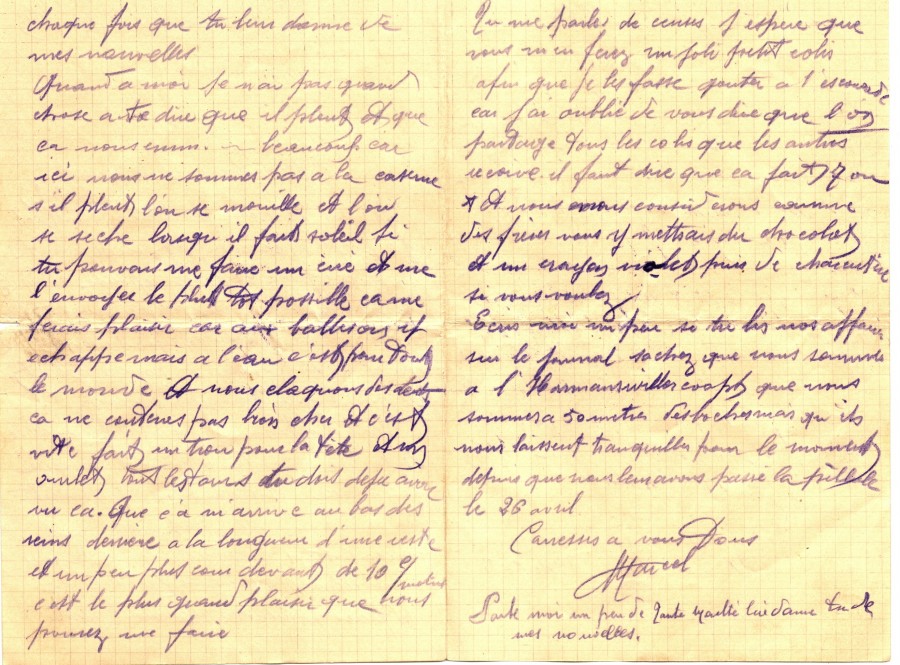 chaque fois que tu leur donne de
mes nouvelles
Quand a moi je n'ai pas quand
chose a te dire que il pleut et que
ca nous ennui beaucoup car
ici nous ne sommes pas a la caserne
s'il pleut l'on se mouille et l'on
se seche lorsqu'il fait soleil si
tu pouvais me faire un ciré et me
l'envoyer le plus tot possible ca me
ferais plaisir car aux balles on y
echappe mais a l'eau c'est pour tout
le monde et nous claquons des dents
ca ne couteras pas bien cher et c'est
vite fait un trou pour la tête et un
oulet tout le tours tu dois deja avoir
vu ca. Que ca m'arrive au bas des
reins derriere a la longueur d'une veste
et un peu plus cour devant de 10 c/metres
c'est le plus quand plaisir que vous
pouvez me faire
Tu me parles de j'espere que
vous m'en ferez un joli petit colis
afin que je les fasse gouter a l'escouade
car j'ai oublié de vous dire que l'on
partage tous les colis que les autres
recoive il faut dire que ca fait 7 on
et nous nous considerons comme
des frères vous y mettrais du chocolat
et un crayon violet puis de charcuterie
si vous voulez
Ecris moi un peu si tu lis nos affaires
sur le journal sachez que nous sommes
a l'Harmanswillerscopft que nous
sommes a 50 metres des boches mais qu'ils
nous laissent tranquilles pour le moment
depuis que nous leur avons passé la pille
le 26 avril
Caresses a vous Tous
Marcel
Parle moi un peu de Tante
mes nouvelles.